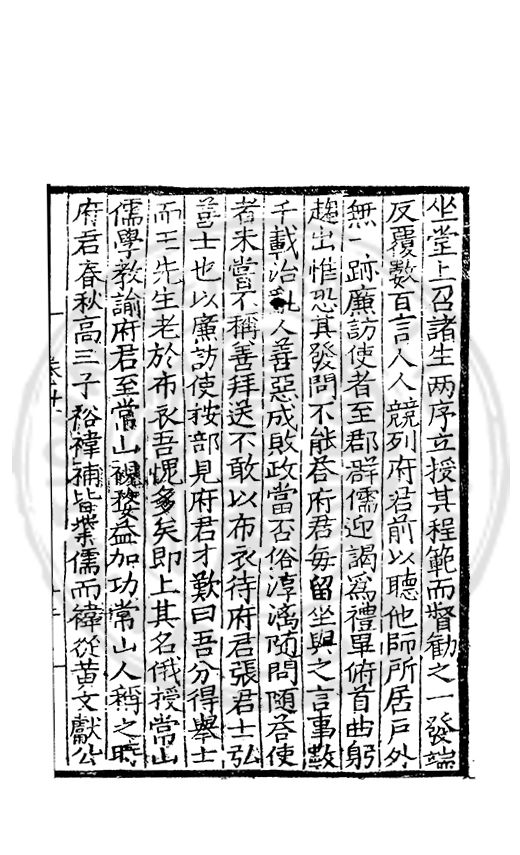 坐堂上召諸生兩序立授其程範而督勸之一發端
反覆數百言人人競列府君前以聽他師所居戶外
無一跡廉訪使者至郡群儒迎謁爲禮畢俯首曲躬
趨出惟恐其發問不能荅府君每留坐與之言事數
千載治亂人善惡成敗政當否俗淳漓随問随荅使
者未嘗不稱善拜送不敢以布衣待府君張君士弘
善士也以廉訪使按部見府君才歎曰吾分得舉士
而王先生老於布衣吾愧多矣即上其名俄授常山
儒學教諭府君至常山視婺益加功常山人稱之時
府君春秋高三子裕褘補皆業儒而褘從黃文獻公